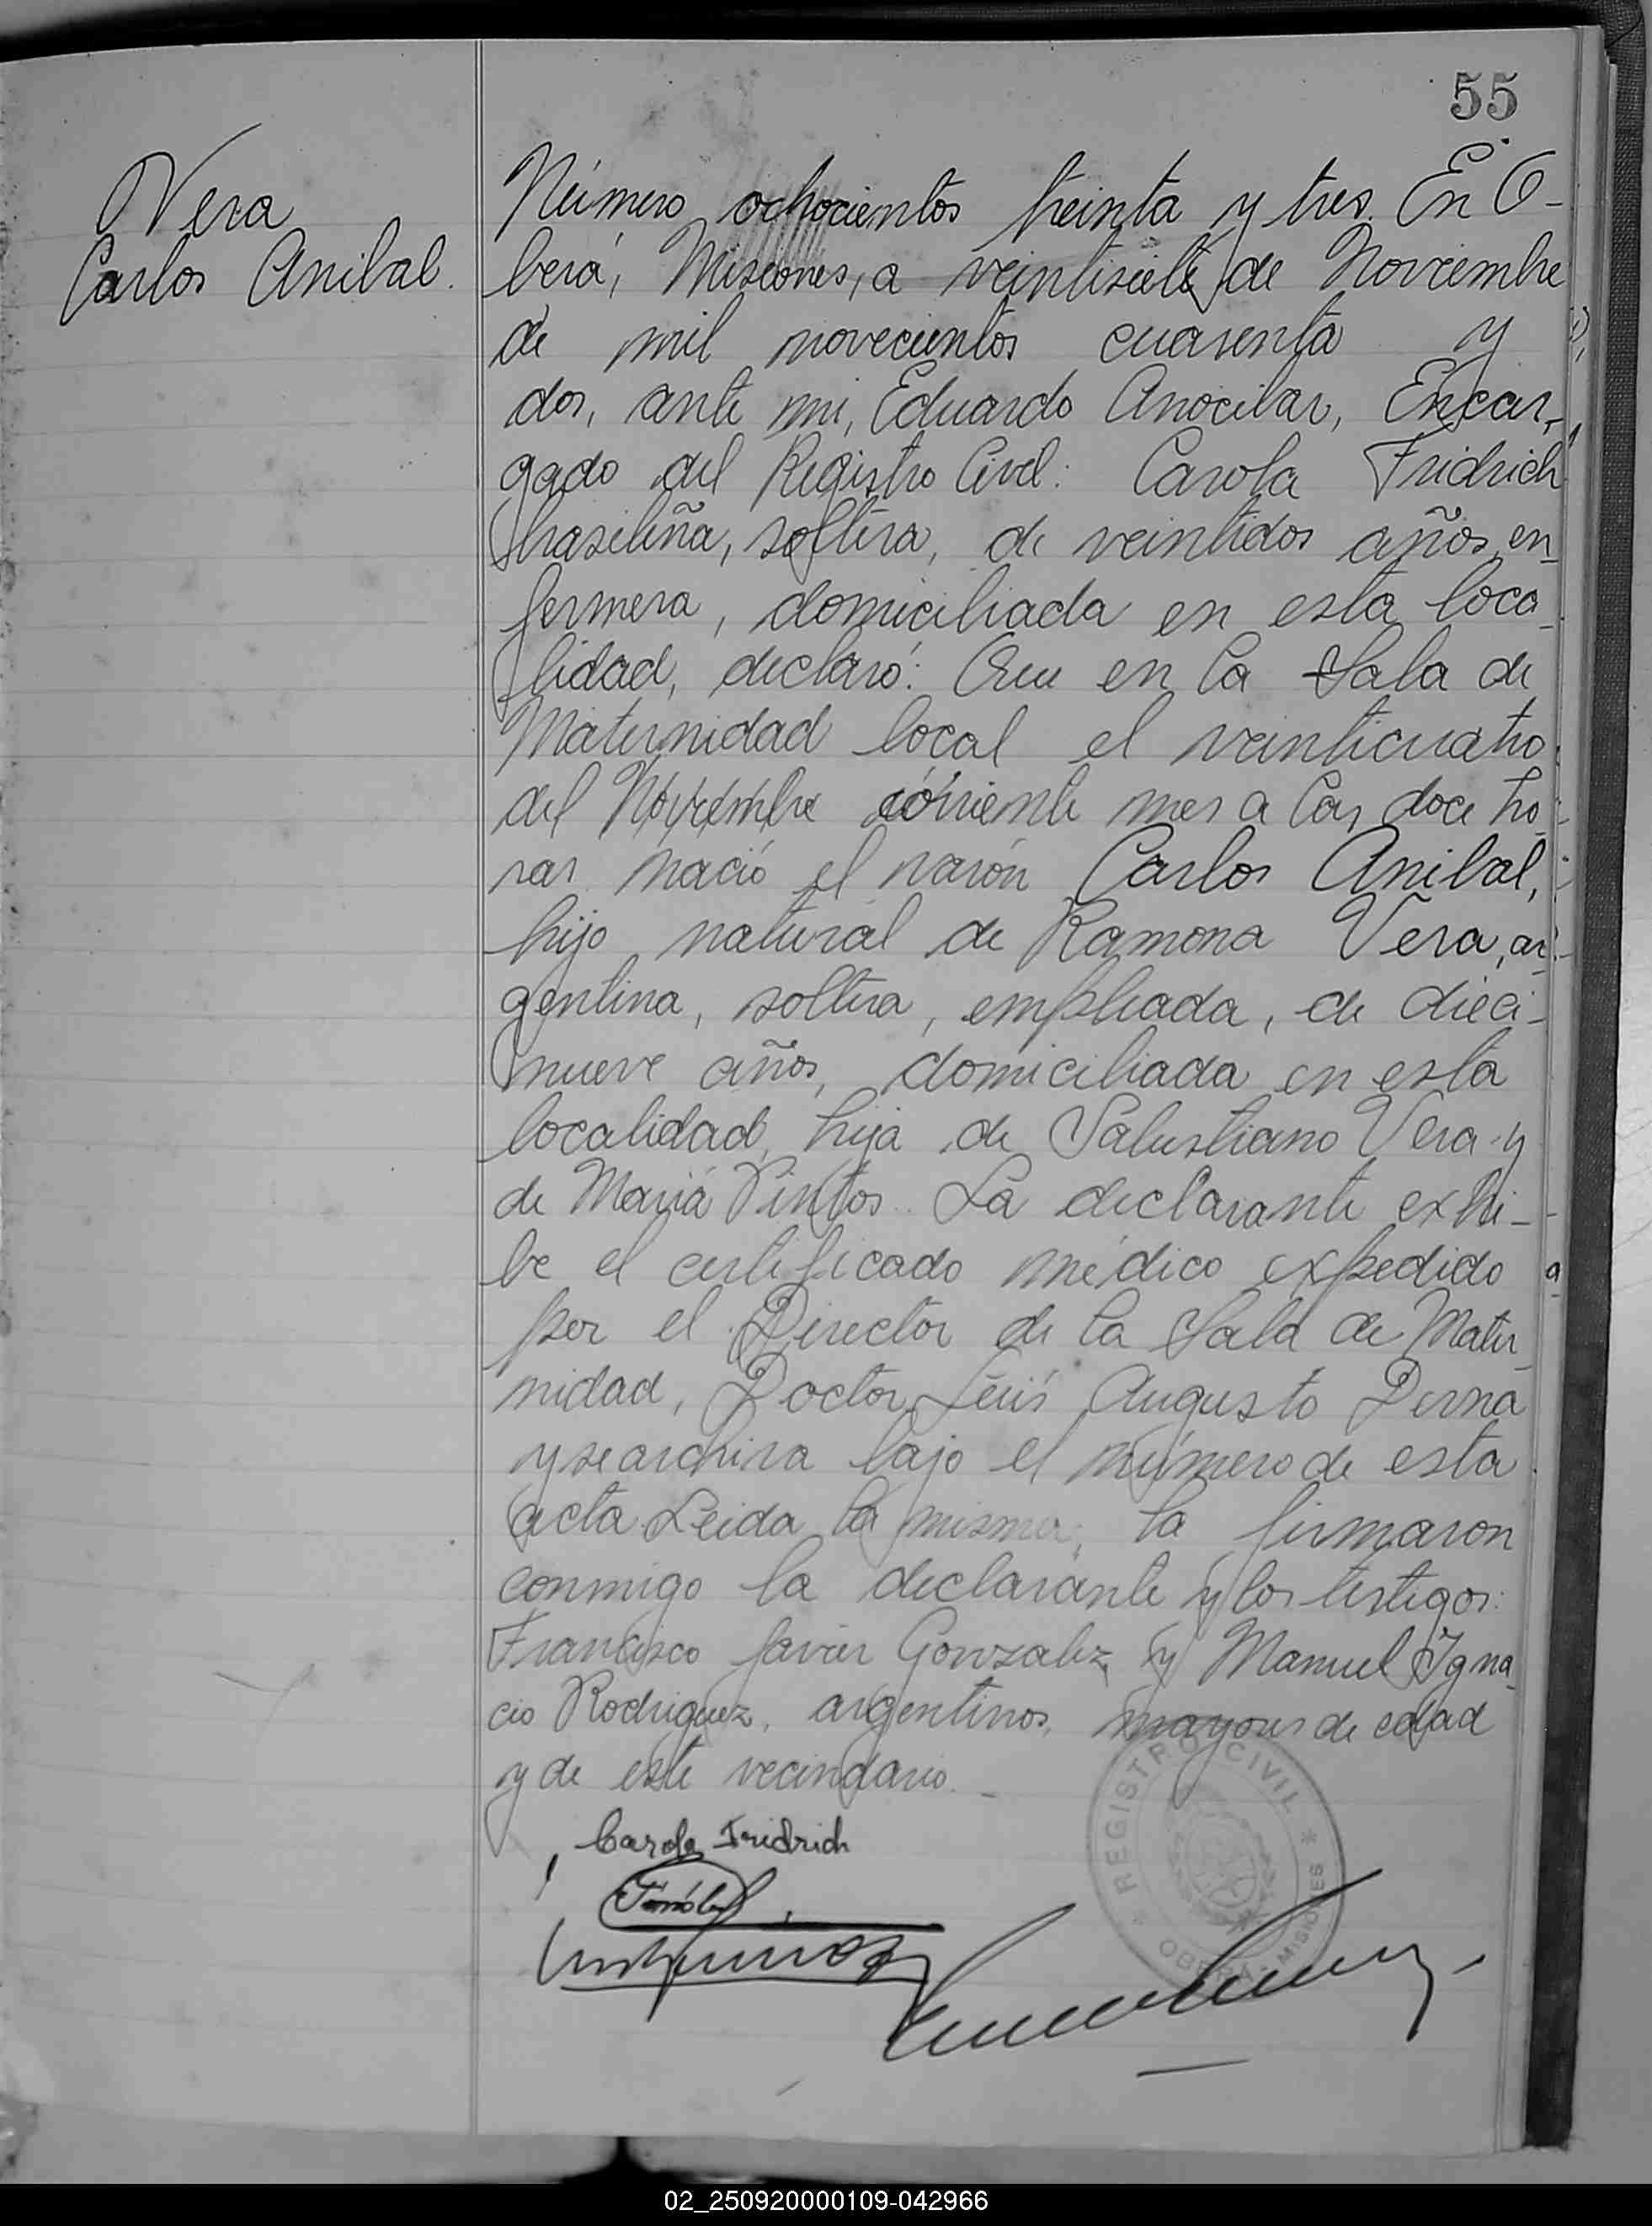 55
Vera
Carlos Anibal.
Número ochocientos treinta y tres. En O-
berá, Misiones, a veintisiete de Noviembre
de mil novecientos cuarenta y
dos, ante mi, Eduardo Anocibar, Encar-
gado del Registro Civil: Carola Fridrich
brasileña, soltera, de veintidos años, en
fermera, domiciliada en esta loca
lidad, declaró: Que en la Sala de
Maternidad local el veinticuatro
del Noviembre corriente mes a las doce ho
ras nació el varón Carlos Anibal,
hijo natural de Ramona Vera, ar-
gentina, soltera, empleada, de dieci-
nueve años, domiciliada en esta
localidad, hija de Salustiano Vera y
de María Pintos. La declarante exhi-
be el certificado médico expedido
por el Director de la Sala de Mater
nidad, Doctor Luis Augusto Derna
y se archiva bajo el número de esta
acta. Leida la misma, la firmaron
conmigo la declarante y los testigos:
Francisco Javier Gonzalez y Manuel Igna
cio Rodriguez, argentinos, mayores de edad
y de este vecindario.
Carola Fridrich
REGISTRO CIVIL
OBERA - MISIONES
02_250920000109-042966